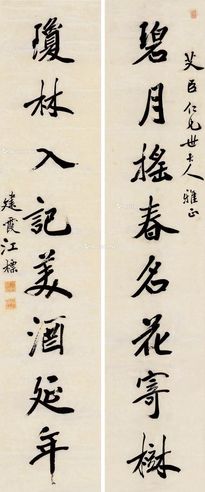 艾臣仁兄世大人雅正
碧月搖春名花寄樹
瓊林入記美酒延年
建霞江標